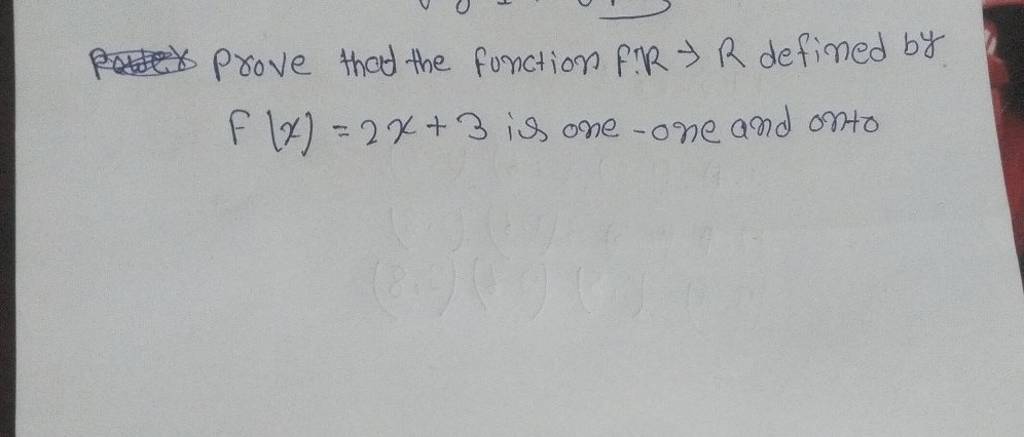 Prove that the function f:R → R defined by
F(x) = 2x + 3 is one-one and onto